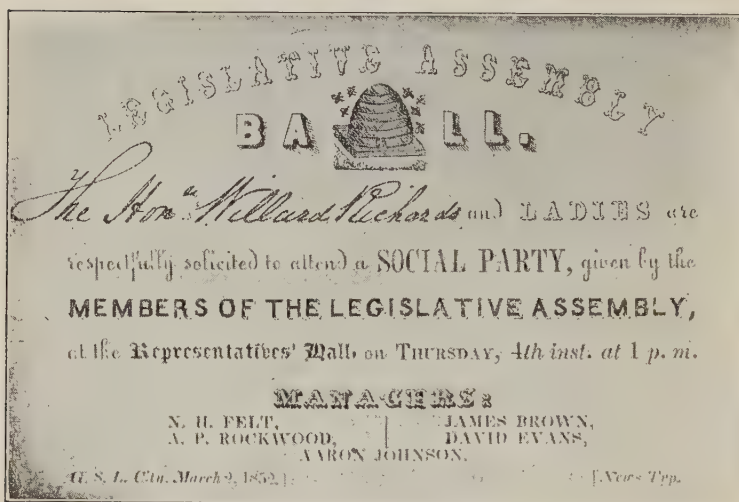 LEGISLATIVE ASSEMBLY
BALL.
The Hon. Willard Richards and LADIES are
respectfully solicited to attend a SOCIAL PARTY, given by the
MEMBERS OF THE LEGISLATIVE ASSEMBLY,
at the Representatives' Hall, on THURSDAY, 4th inst. at 1 p. m.
MANAGERS:
N. H. FELT, JAMES BROWN,
A. P. ROCKWOOD, DAVID EVANS,
AARON JOHNSON.
G. S. L. City, March 2, 1852. [News Typ.